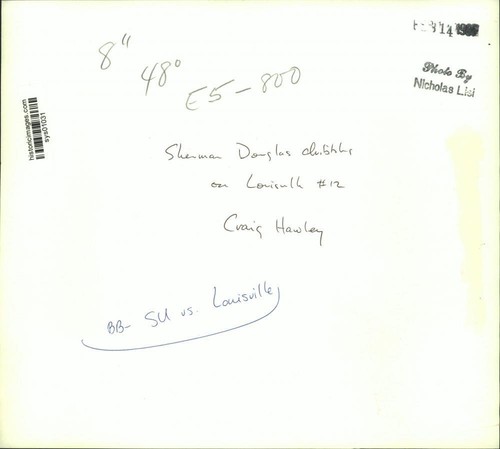 8"
48°
E5-800
14
Photo By
Nicholas Lisi
historicimages.com
sya01031
Sherman Douglas dribbles
on Louisville #12
Craig Hawley
BB- SU vs. Louisville